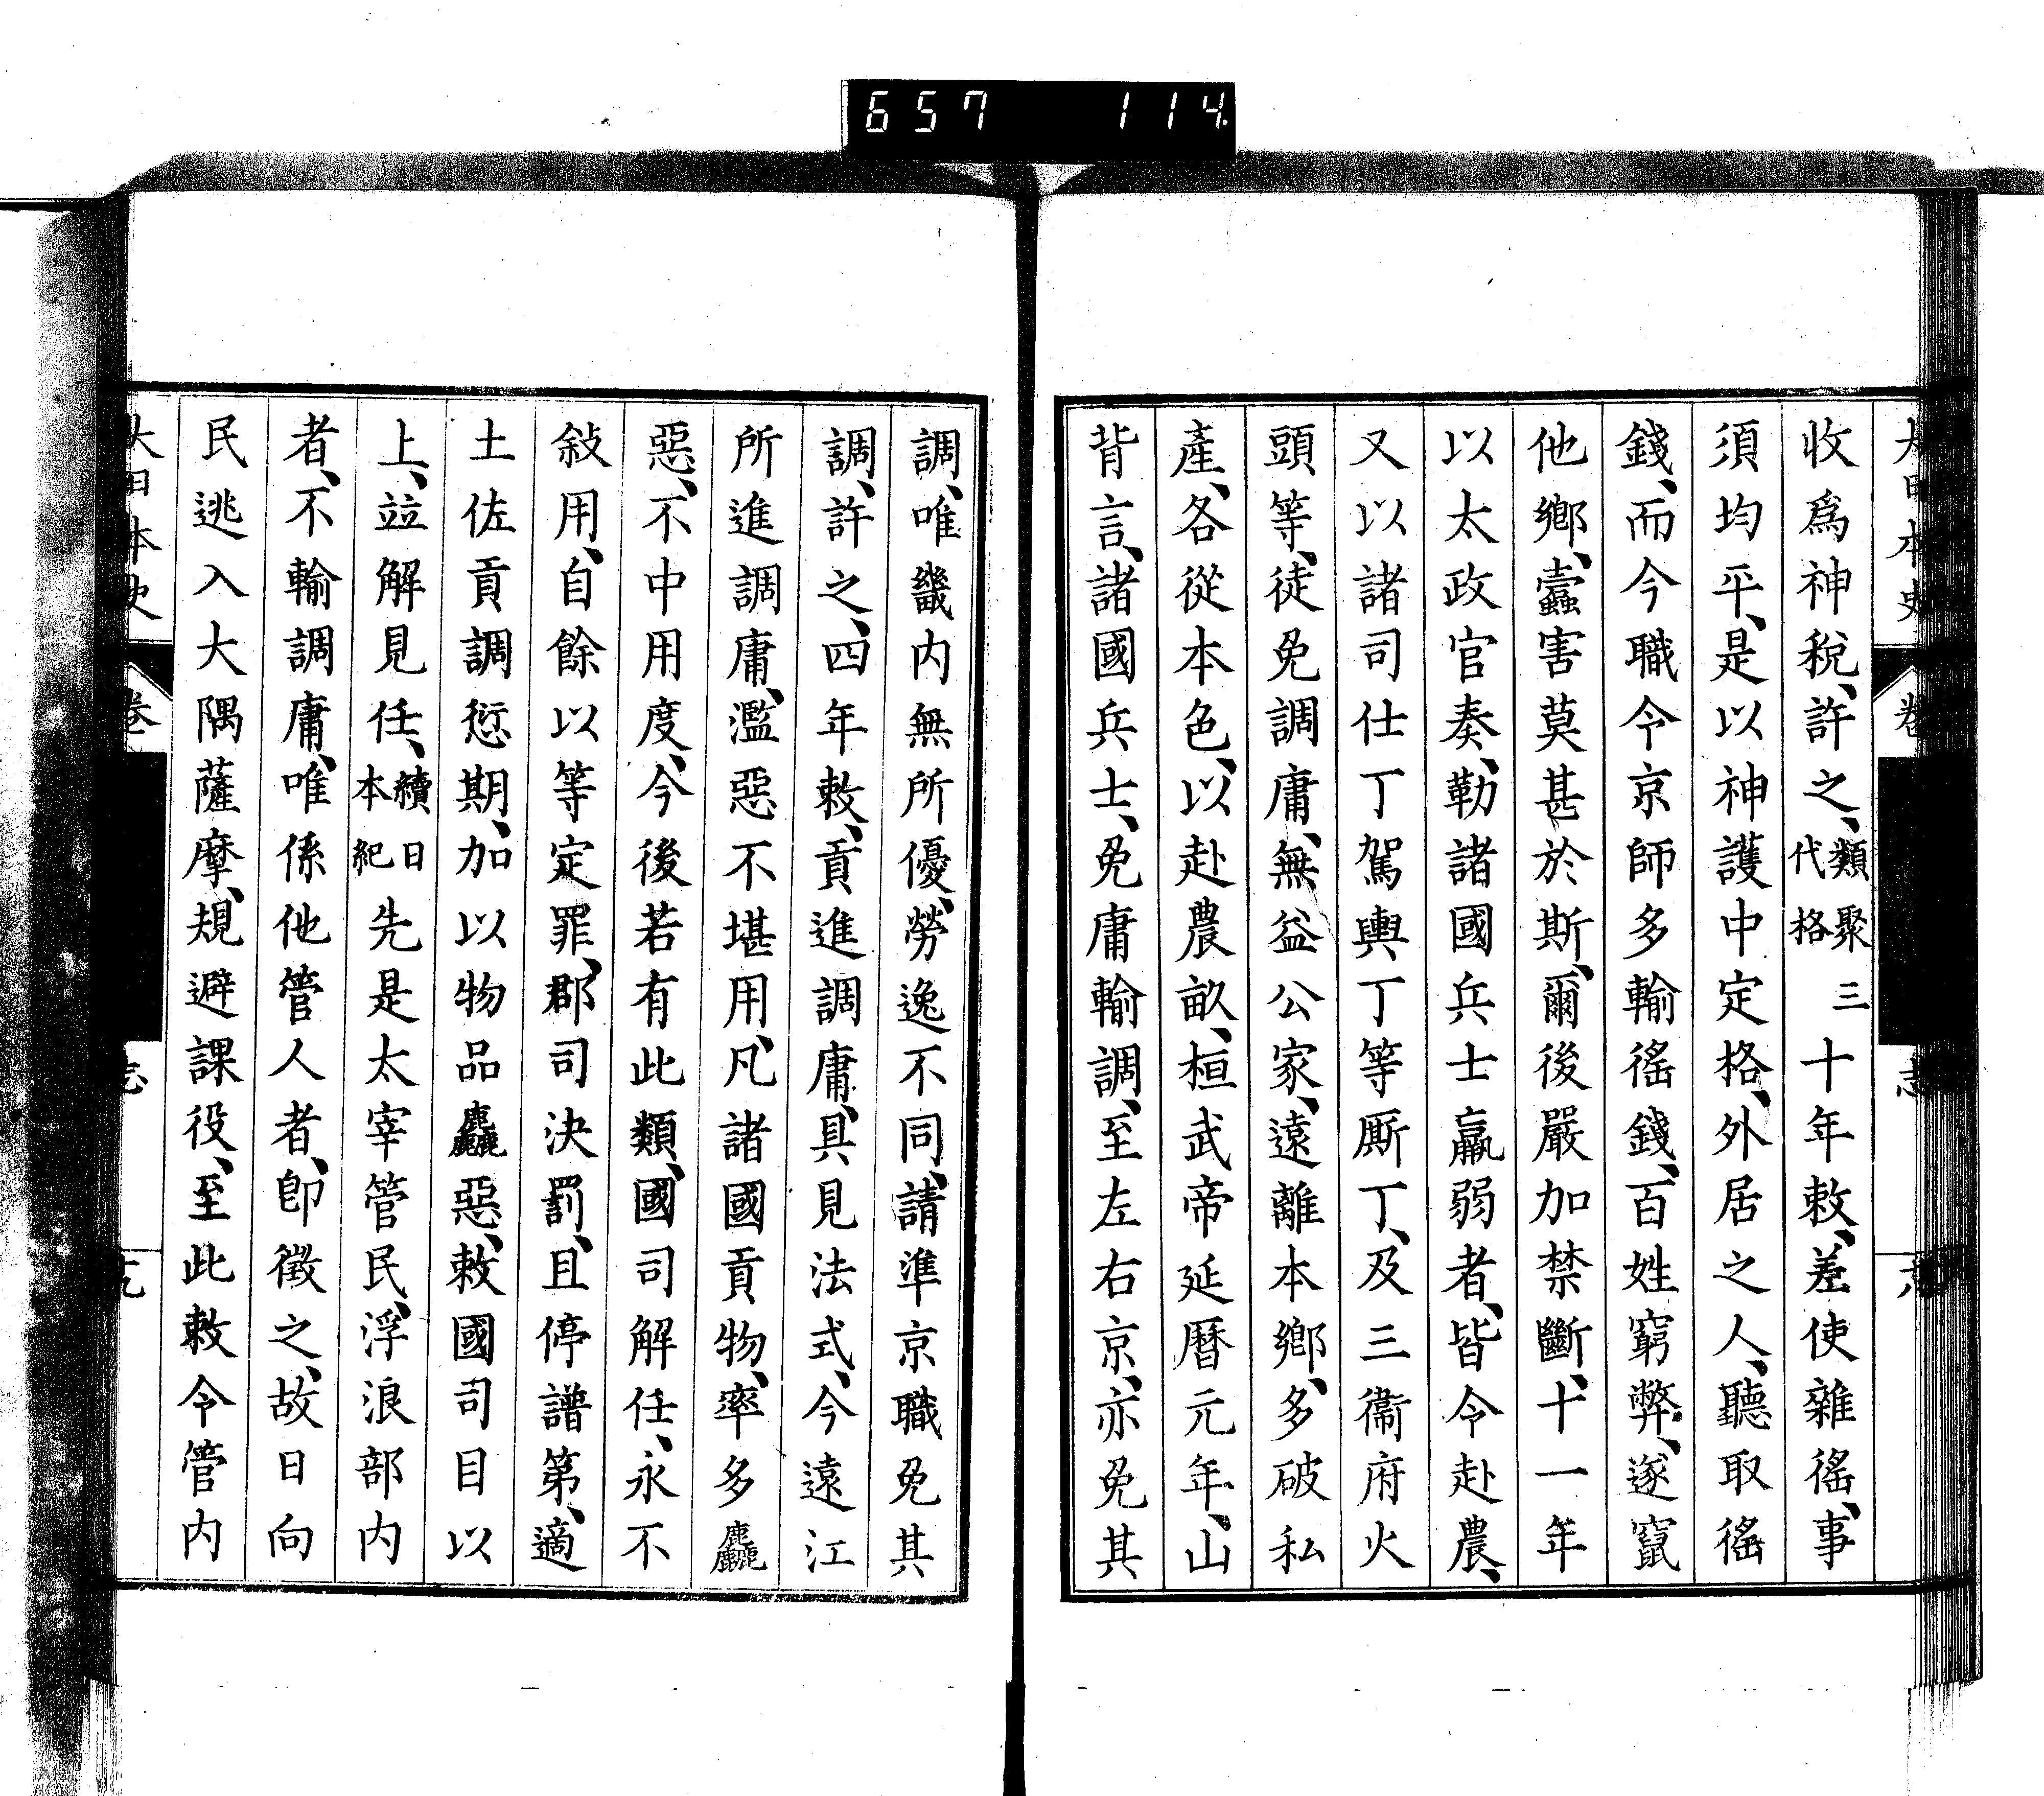 657 114.
大日本史 卷 志
收爲神稅、許之、類聚代格三十年敕、差使雜徭、事
須均平、是以神護中定格、外居之人、聽取徭
錢、而今職令京師多輸徭錢、百姓窮弊、遂竄
他鄉、蠹害莫甚於斯、爾後嚴加禁斷、十一年
以太政官奏、勒諸國兵士羸弱者、皆令赴農、
又以諸司仕丁駕輿丁等厮丁、及三衞府火
頭等、徒免調庸、無益公家、遠離本鄉、多破私
產、各從本色、以赴農畝、桓武帝延曆元年、山
背言、諸國兵士、免庸輸調、至左右京、亦免其
調、唯畿内無所優、勞逸不同、請準京職免其
調、許之、四年敕、貢進調庸、具見法式、今遠江
所進調庸、濫惡不堪用、凡諸國貢物、率多麤
惡、不中用度、今後若有此類、國司解任、永不
敍用、自餘以等定罪、郡司決罰、且停譜第、適
土佐貢調愆期、加以物品麤惡、敕國司目以
上、竝解見任、續日本紀先是太宰管民、浮浪部内
者、不輸調庸、唯係他管人者、卽徵之、故日向
民逃入大隅薩摩、規避課役、至此敕令管内
大日本史 卷 志